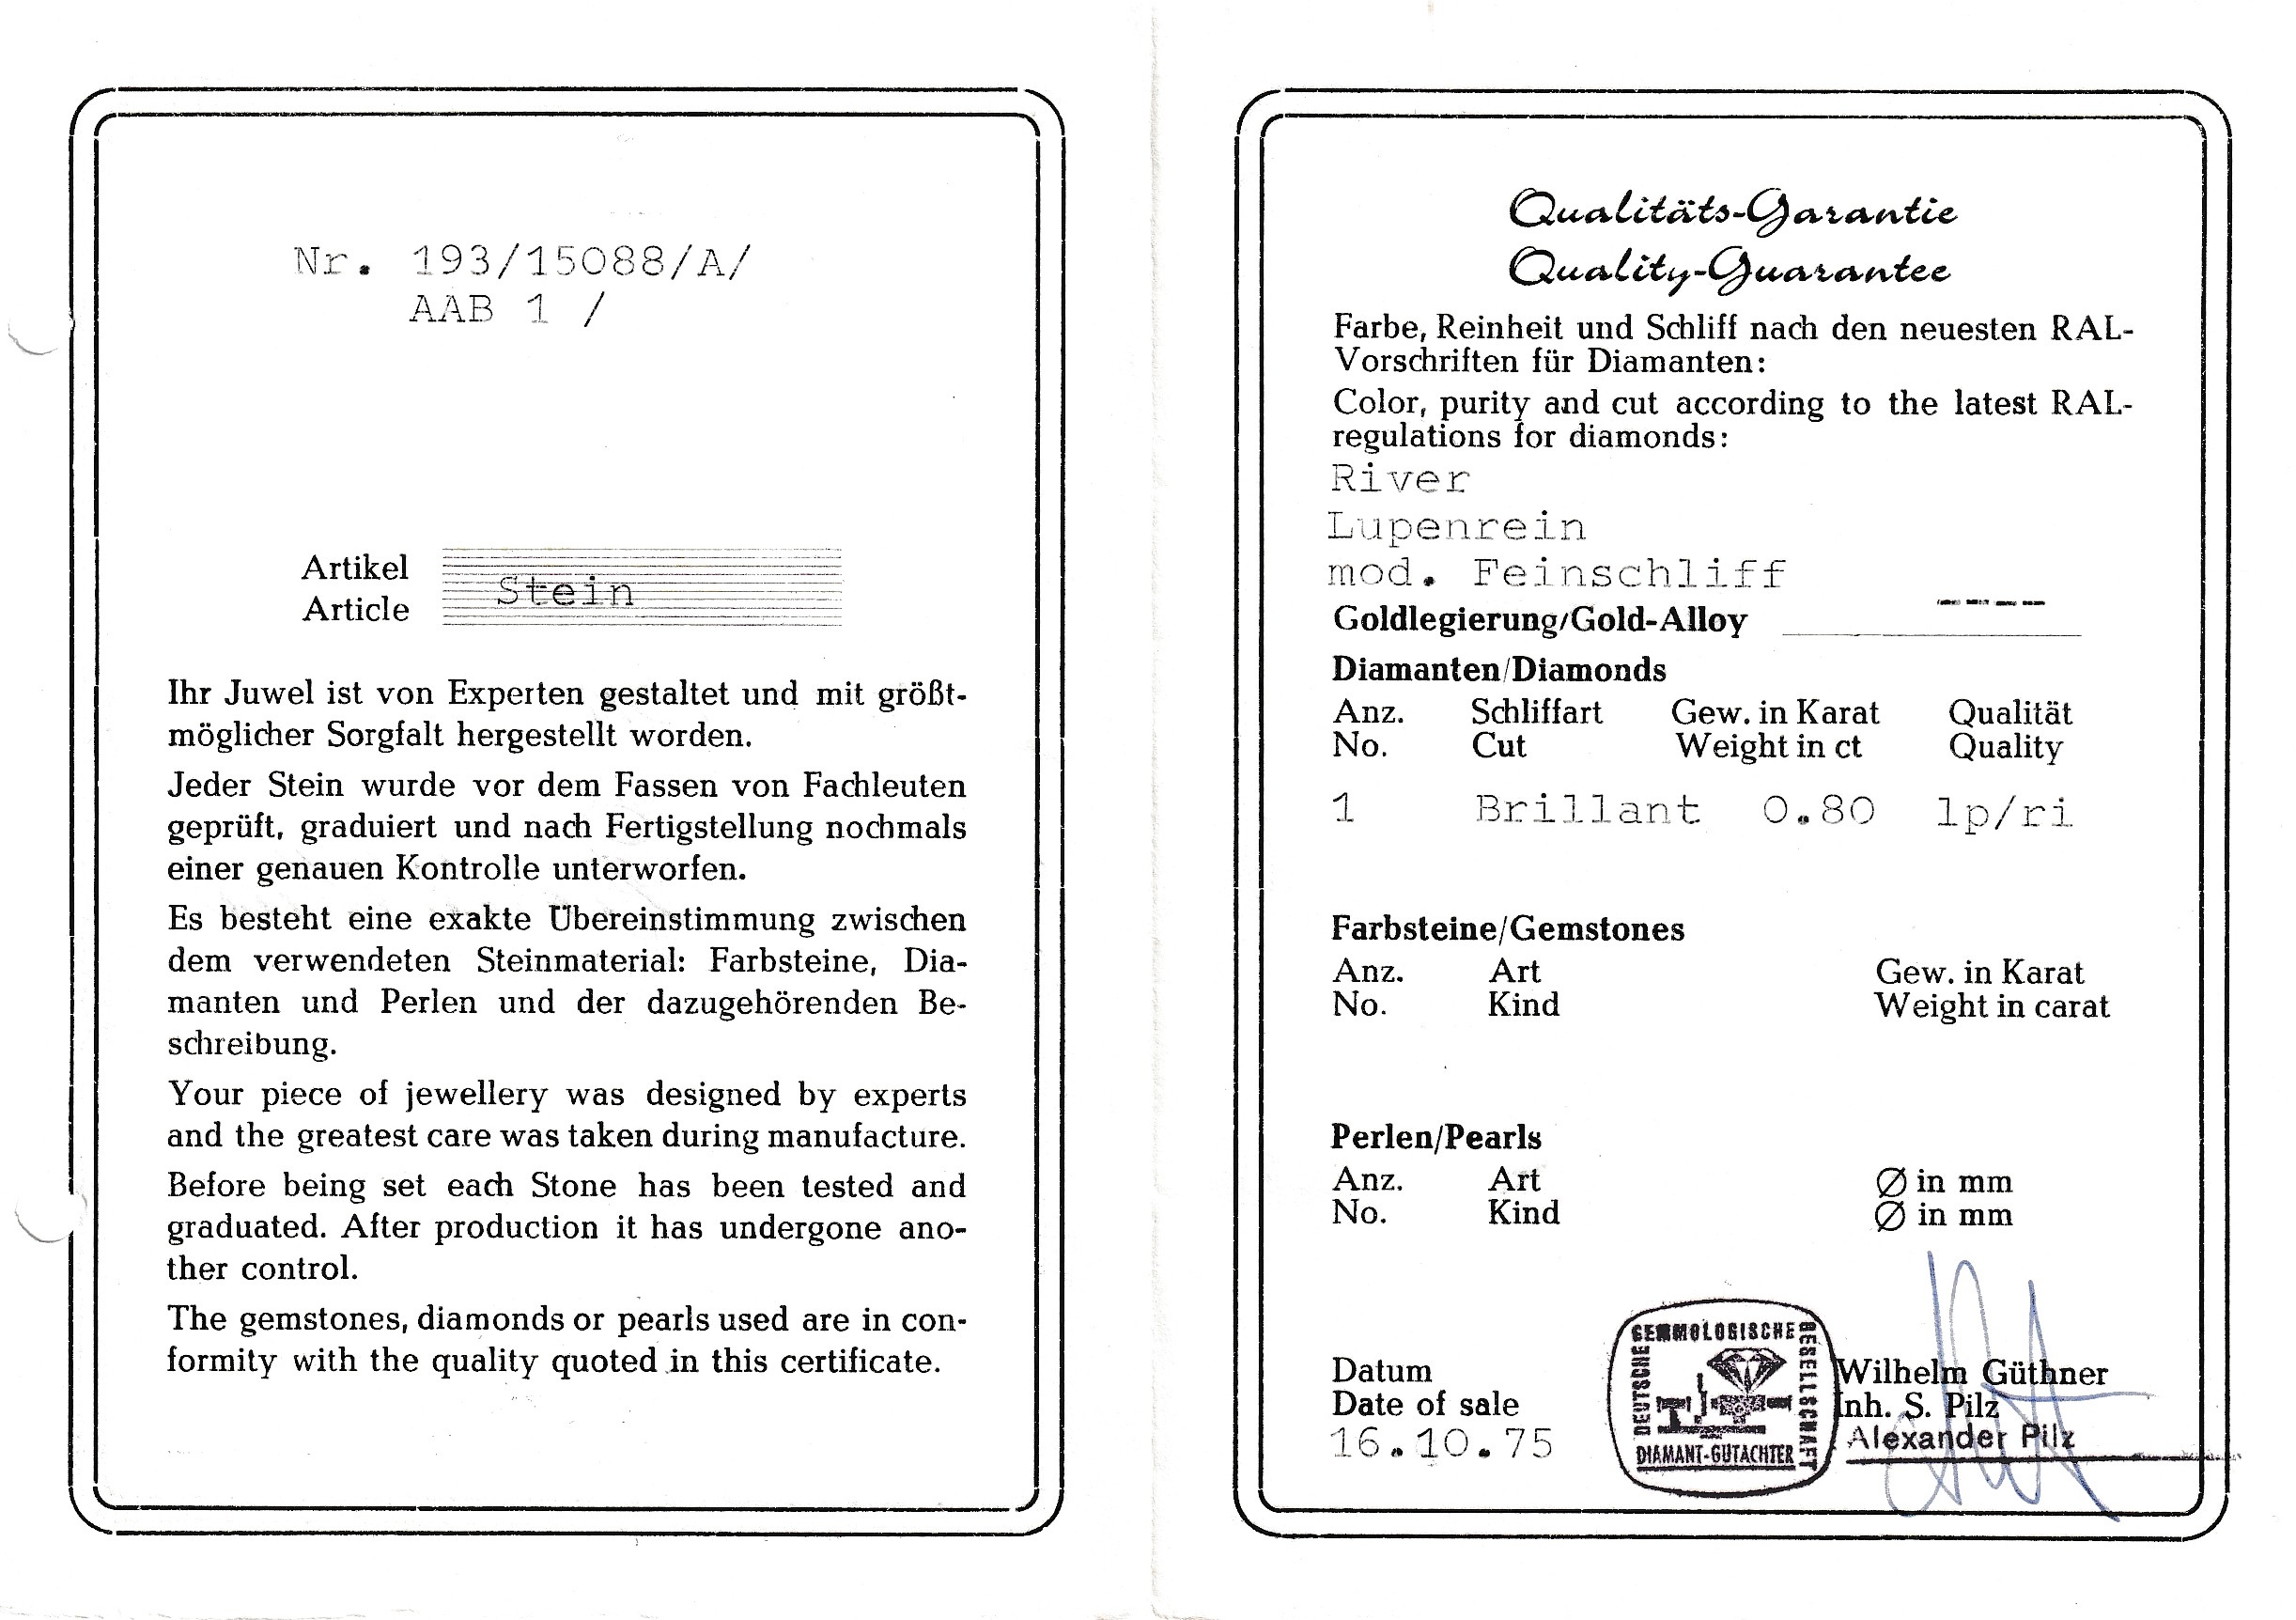 Nr. 193/15088/A/
AAB 1 /
Artikel
Article
Stein
Ihr Juwel ist von Experten gestaltet und mit größt-
möglicher Sorgfalt hergestellt worden.
Jeder Stein wurde vor dem Fassen von Fachleuten
geprüft, graduiert und nach Fertigstellung nochmals
einer genauen Kontrolle unterworfen.
Es besteht eine exakte Übereinstimmung zwischen
dem verwendeten Steinmaterial: Farbsteine, Dia-
manten und Perlen und der dazugehörenden Be-
schreibung.
Your piece of jewellery was designed by experts
and the greatest care was taken during manufacture.
Before being set each Stone has been tested and
graduated. After production it has undergone ano-
ther control.
The gemstones, diamonds or pearls used are in con-
formity with the quality quoted in this certificate.
Qualitäts-Garantie
Quality-Guarantee
Farbe, Reinheit und Schliff nach den neuesten RAL-
Vorschriften für Diamanten:
Color, purity and cut according to the latest RAL-
regulations for diamonds:
River
Lupenrein
mod. Feinschliff
Goldlegierung/Gold-Alloy ----
Diamanten/Diamonds
Anz. Schliffart Gew. in Karat Qualität
No. Cut Weight in ct Quality
1 Brillant 0.80 lp/ri
Farbsteine/Gemstones
Anz. Art Gew. in Karat
No. Kind Weight in carat
Perlen/Pearls
Anz. Art Ø in mm
No. Kind Ø in mm
Datum
Date of sale
16.10.75
DEUTSCHE GEMMOLOGISCHE GESELLSCHAFT
DIAMANT-GUTACHTER
Wilhelm Güthner
Inh. S. Pilz
Alexander Pilz